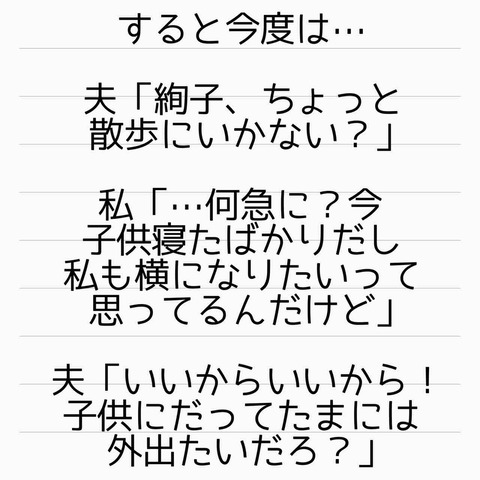 すると今度は…
夫「絢子、ちょっと
散歩にいかない？」
私「…何急に？今
子供寝たばかりだし
私も横になりたいって
思ってるんだけど」
夫「いいからいいから！
子供にだってたまには
外出たいだろ？」